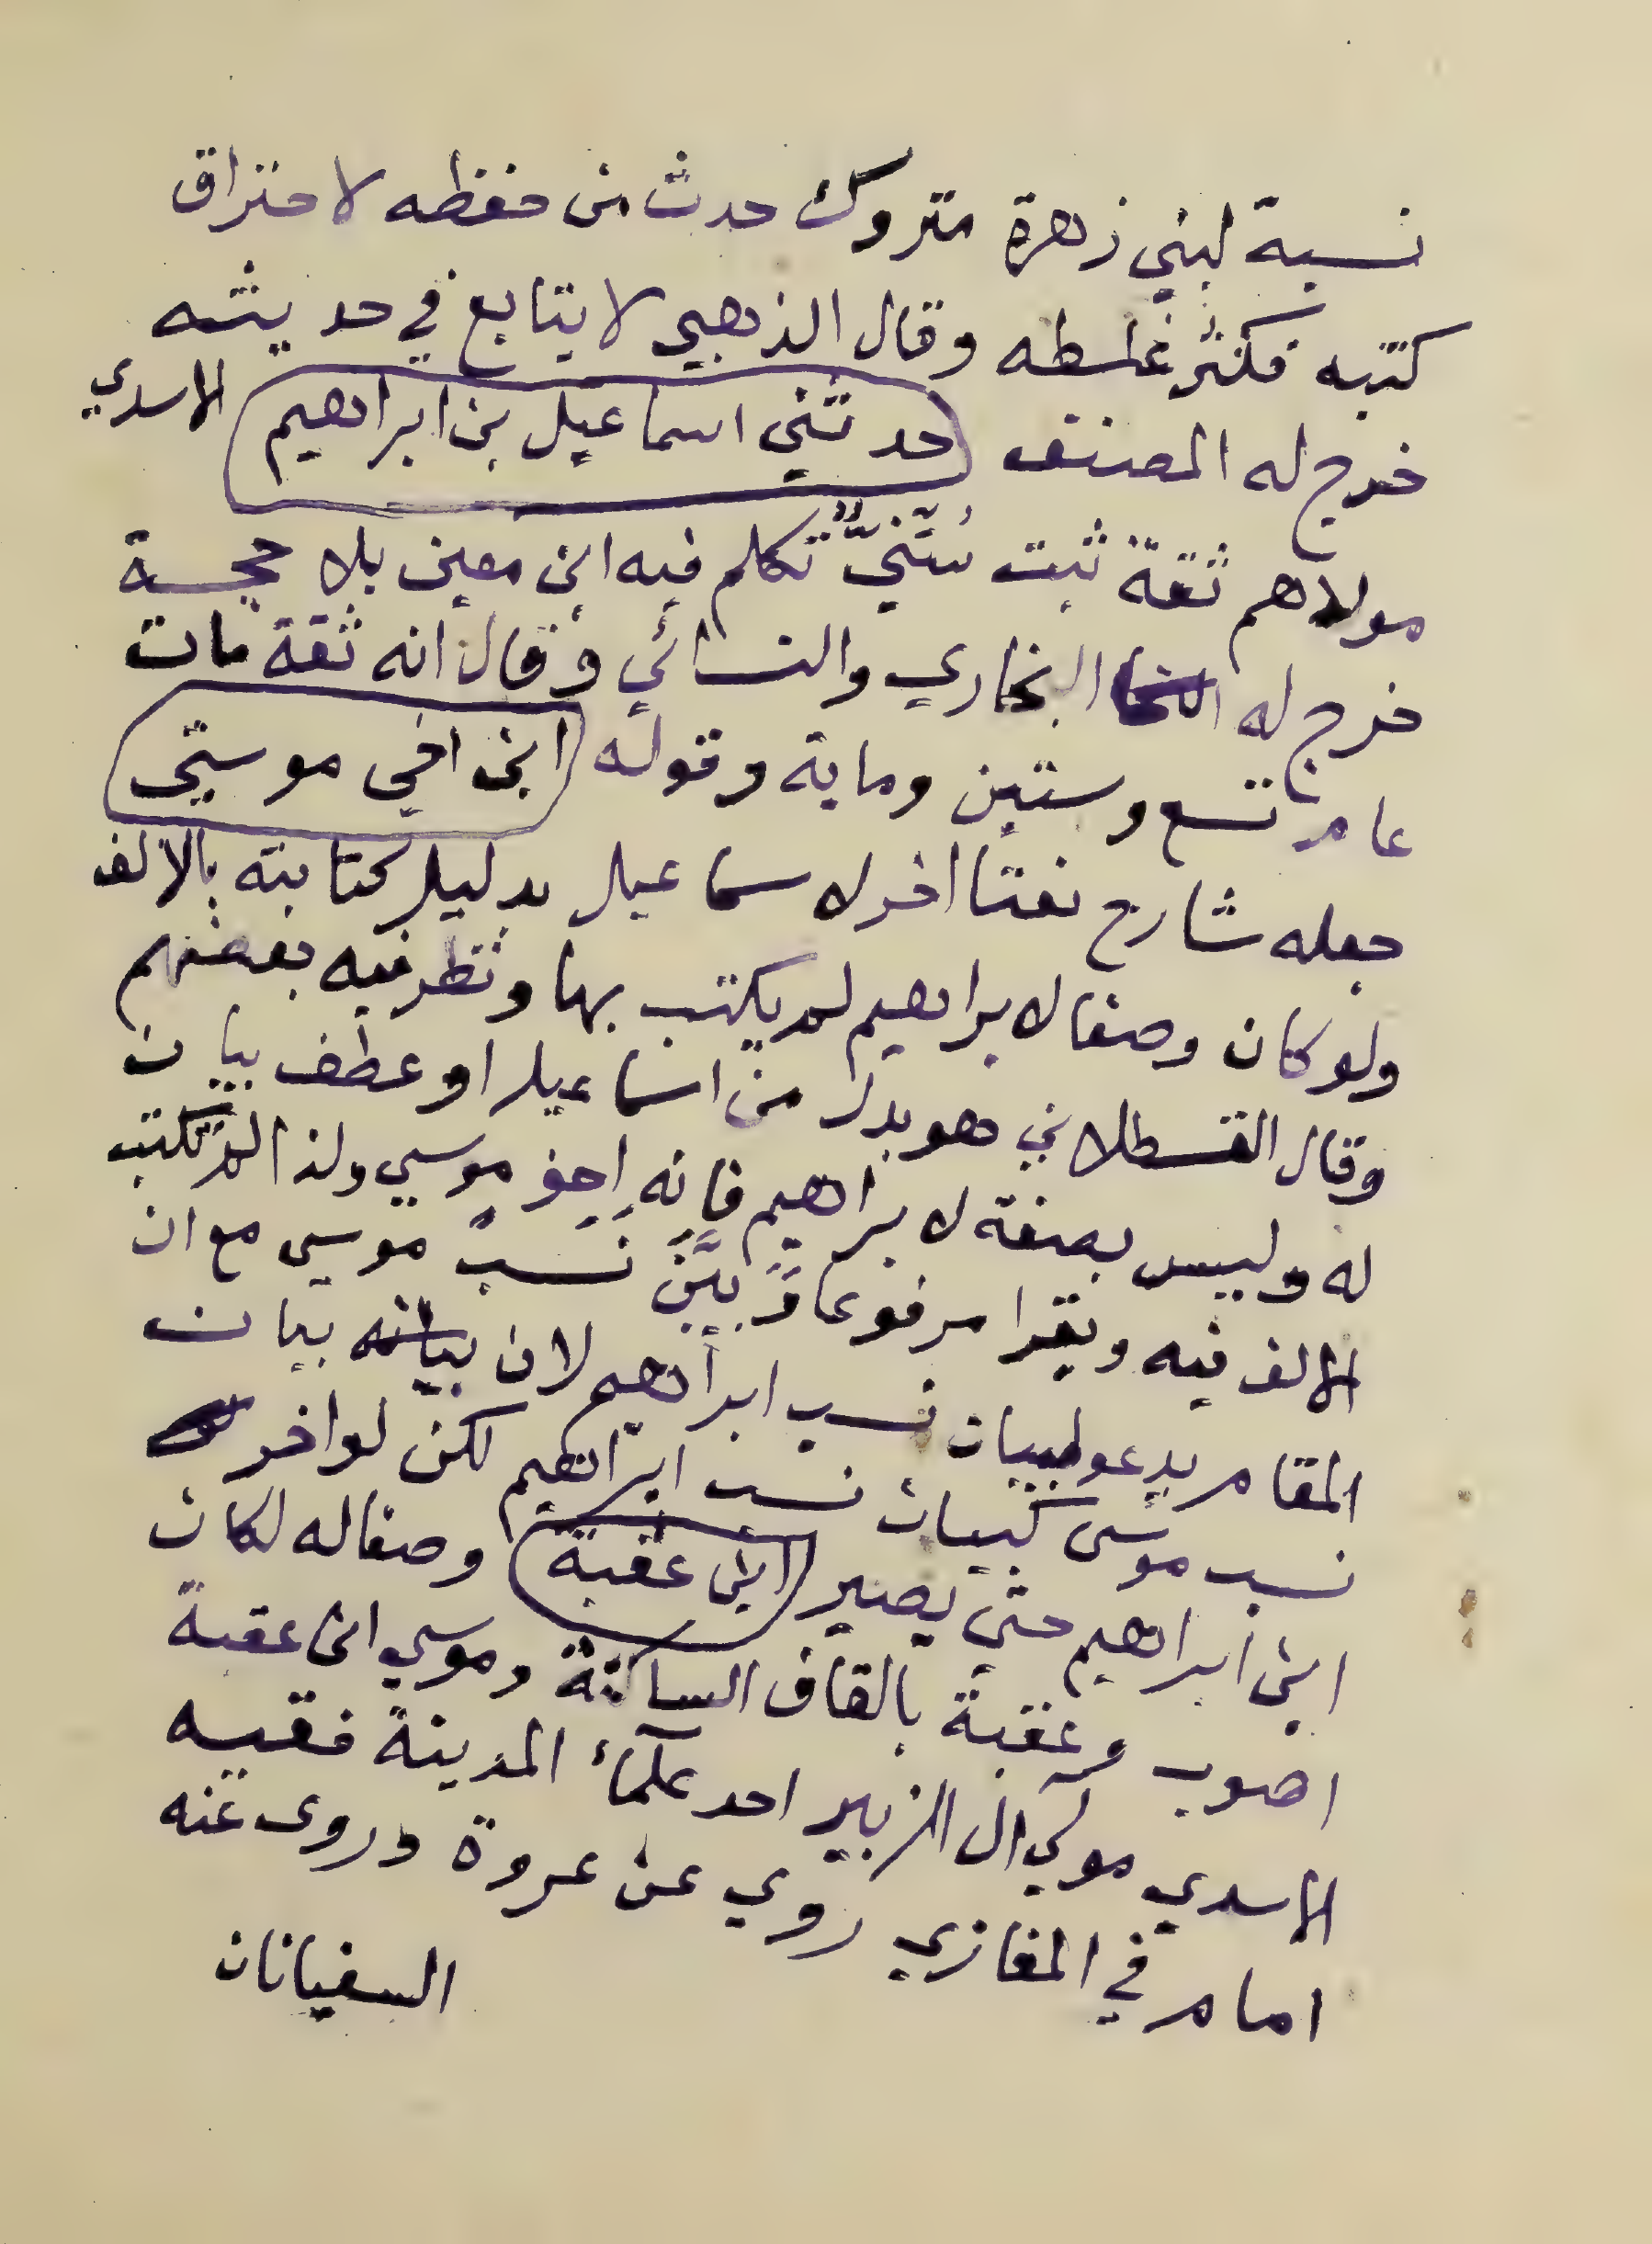 نسبة لبني زهرة متروك حدث من حفظه لاحتراق
كتبه فكثر غلطه وقال الذهبي لا يتابع في حديثه
خرج له المصنف حدثني اسماعيل بن ابراهيم الاسدي
مولاهم ثقة ثبت سُنّيٌّ تكلم فيه ابن معين بلا حجة
خرج له البخاري والنسائي وقال انه ثقة مات
عام تسع وستين وماية وقوله ابن اخي موسى
جعله شارح نعتا اخر لاسماعيل بدليل كتابته بالالف
ولو كان وصفا لابراهيم لم يكتب بها ونظر فيه بعضهم
وقال القسطلاني هو بدل من اسماعيل او عطف بيان
له وليس بصفة لابراهيم فانه اخو موسي ولذا لم تكتب
الالف فيه ويقرا مرفوعا وَبيَّنَ نَسَبَ موسى مع ان
المقام يدعو لبيان نسب ابراهيم لان بيانه بيان
نسب موسى كبيان نسب ابراهيم لكن لو اخر
ابن ابراهيم حتى يصير ابن عقبة وصفا له لكان
اصوب وعقبة بالقاف الساكنة وموسي ابن عقبة
الاسدي مولي ال الزبير احد علماء المدينة فقيه
امام في المغازي روي عن عروة وروى عنه
السفيانان